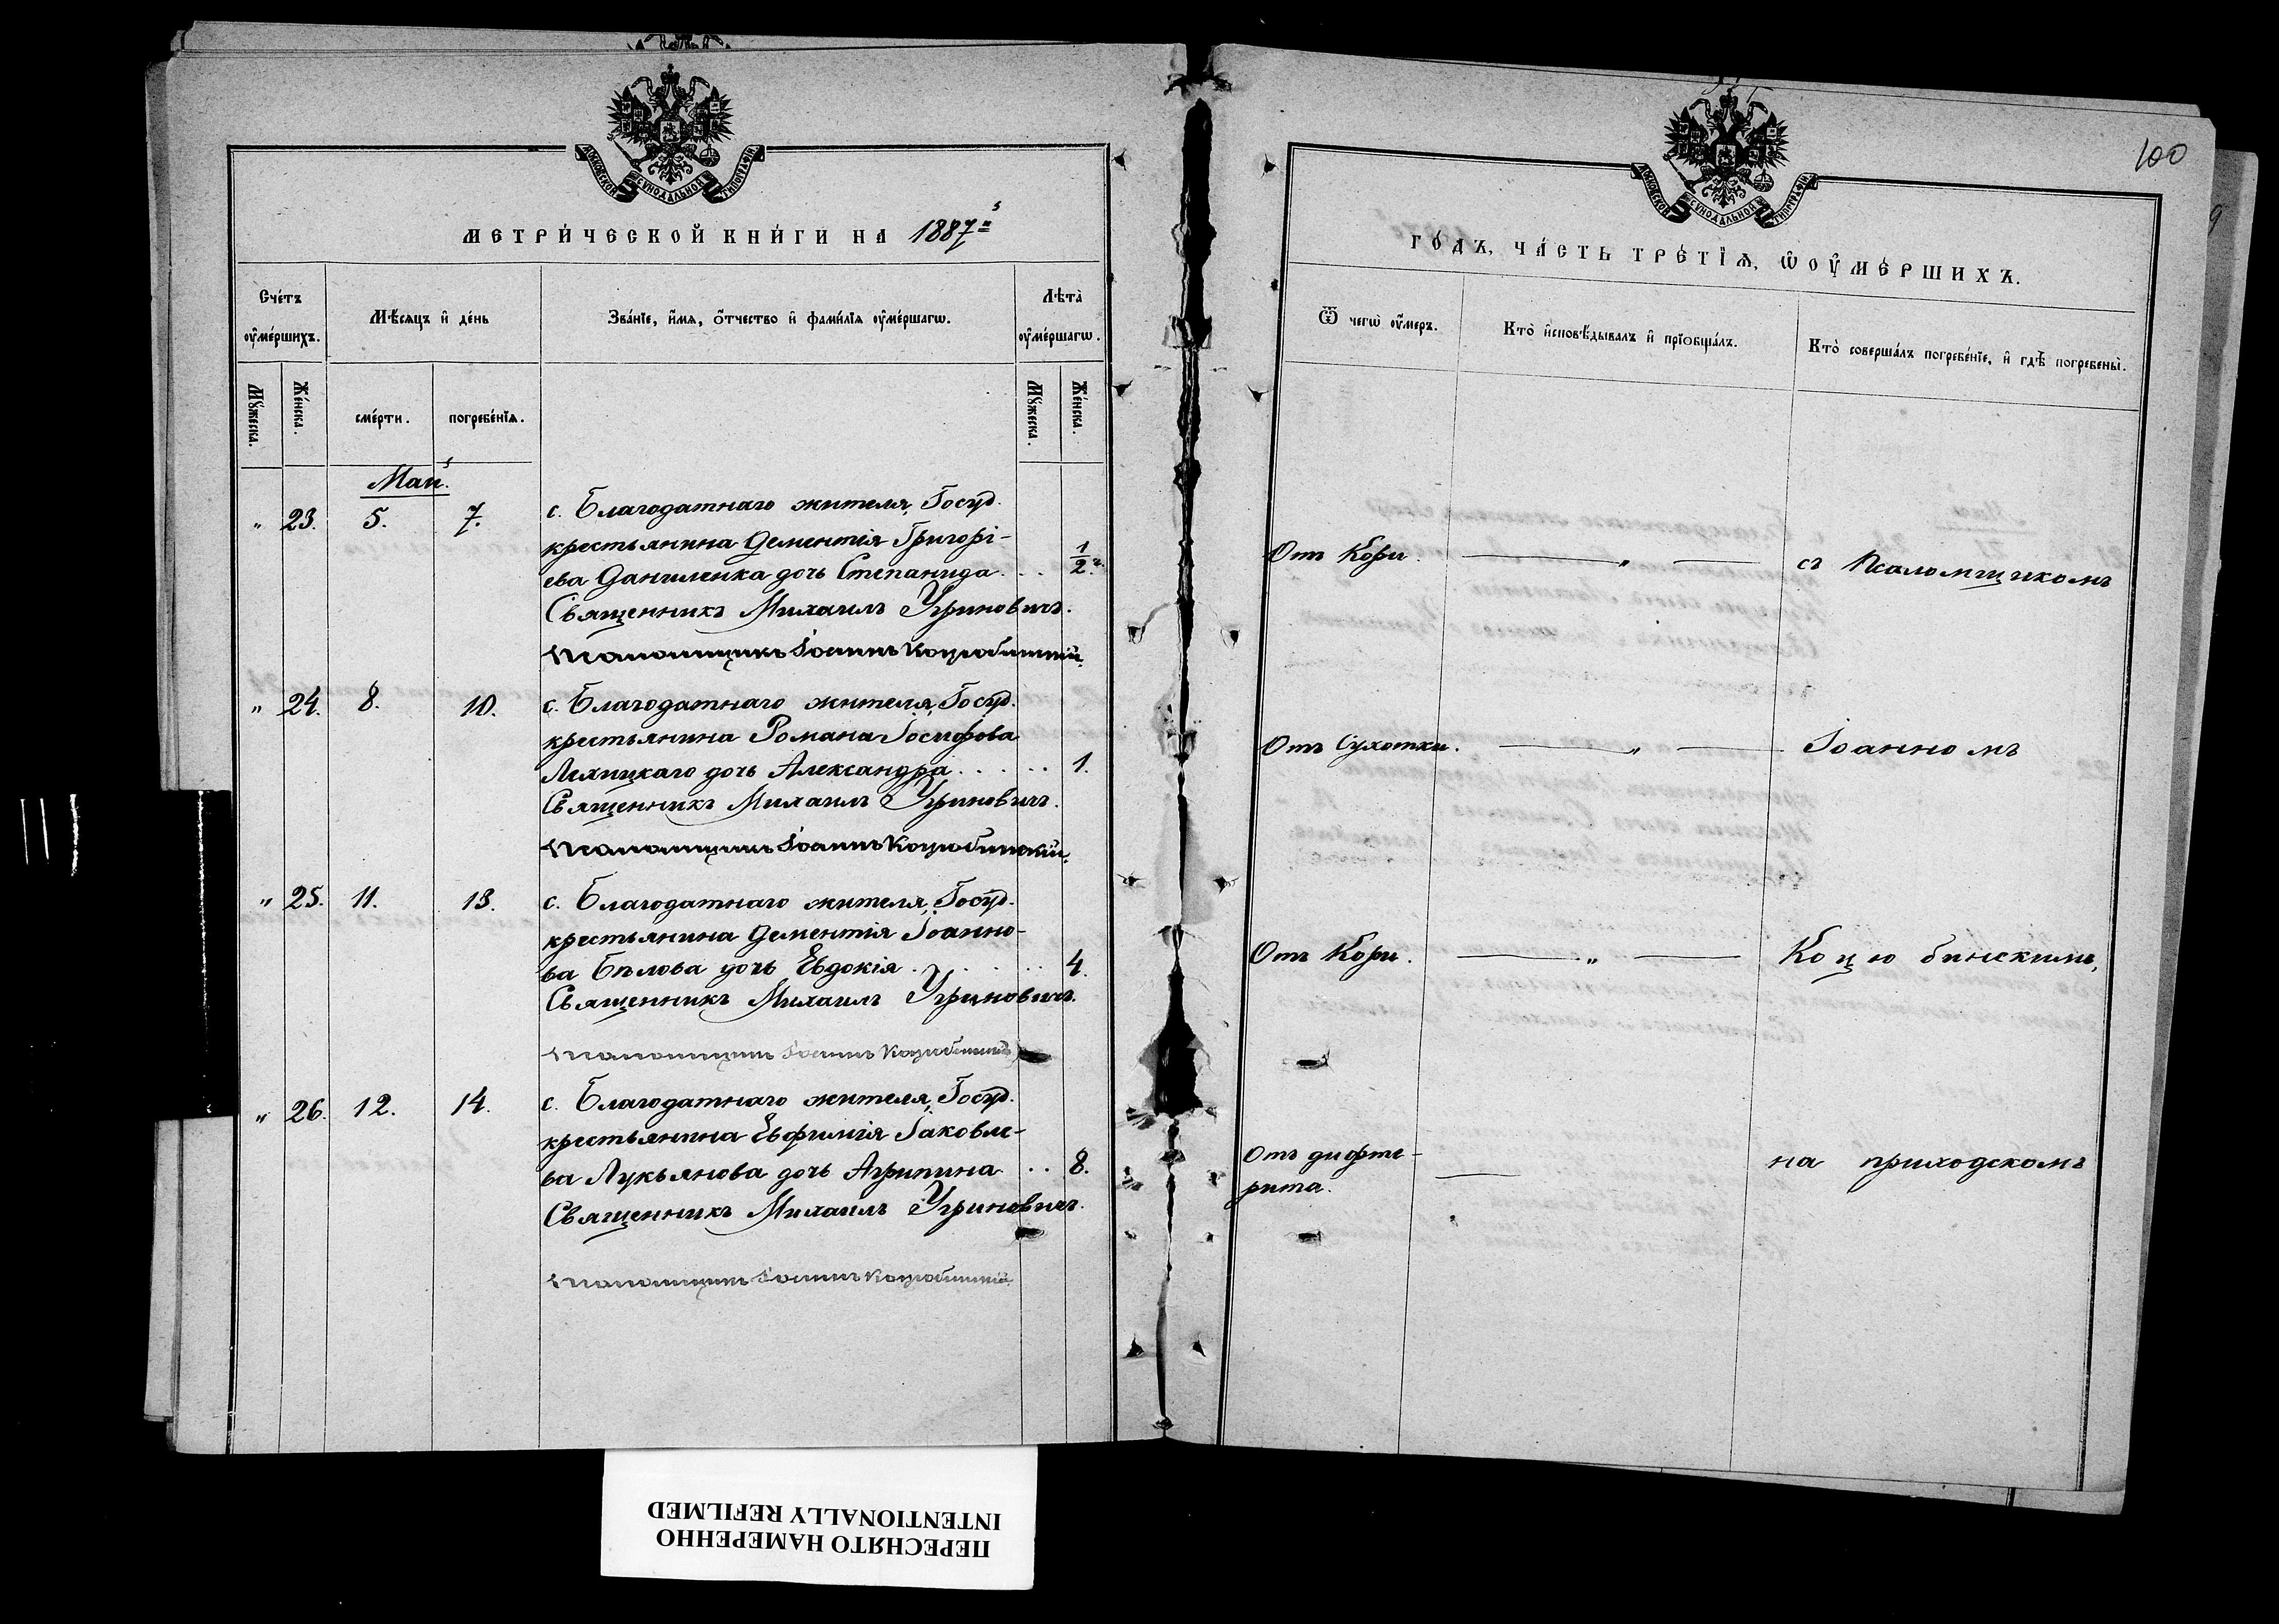 МОСКОВСКОЙ СѴНОДАЛЬНОЙ ТИПОГРАФІИ
МЕТРИ́ЧЕСКОЙ КНИ́ГИ НА 1887й
Сче́тъ
оу҆ме́ршихъ.
Мѣ́сяцъ и҆ де́нь
Зва́нїе, и҆́мя, ѻ҆́тчество и҆ фами́лїя оу҆ме́ршагѡ.
Лѣта̀
оу҆ме́ршагѡ.
Мꙋ́жеска.
Же́нска.
сме́рти.
погребе́нїѧ.
Мꙋ́жеска.
Же́нска.
Май.
" 23. 5. 7. с. Благодатнаго жителя, Госуд.
крестьянина Дементія Григорі-
ева Даниленка дочь Степанида . . . 1/2 г.
Священникъ Михаилъ Угриновичъ.
Псаломщикъ Іоаннъ Коцюбинскій.
" 24. 8. 10. с. Благодатнаго жителя, Госуд.
крестьянина Романа Іосифова
Ляхицкаго дочь Александра . . . . . 1.
Священникъ Михаилъ Угриновичъ.
Псаломщикъ Іоаннъ Коцюбинскій.
" 25. 11. 13. с. Благодатнаго жителя, Госуд.
крестьянина Дементія Іоанно-
ва Бѣлова дочь Евдокія . . . . . 4.
Священникъ Михаилъ Угриновичъ.
Псаломщикъ Іоаннъ Коцюбинскій
" 26. 12. 14. с. Благодатнаго жителя, Госуд.
крестьянина Евфимія Іаковле-
ва Лукьянова дочь Агрипина . . 8.
Священникъ Михаилъ Угриновичъ.
Псаломщикъ Іоаннъ Коцюбинскій.
100
МОСКОВСКОЙ СѴНОДАЛЬНОЙ ТИПОГРАФІИ
ГО́ДЪ, ЧА́СТЬ ТРЕ́ТЇѦ, Ѽ ОУ҆МЕ́РШИХЪ.
Ѿ чегѡ̀ оу҆́меръ.
Кто̀ и҆сповѣ́дывалъ и҆ прїѻбща́лъ.
Кто̀ соверша́лъ погребе́нїе, и҆ гдѣ̀ погребены̀.
Отъ Кори. — " — съ Псаломщикомъ
Отъ Сухотки. — " — Іоанномъ
Отъ Кори. — " — Коцюбинскимъ,
Отъ дифте- — на приходскомъ
рита.
ПЕРЕСНЯТО НАМЕРЕННО
INTENTIONALLY REFILMED